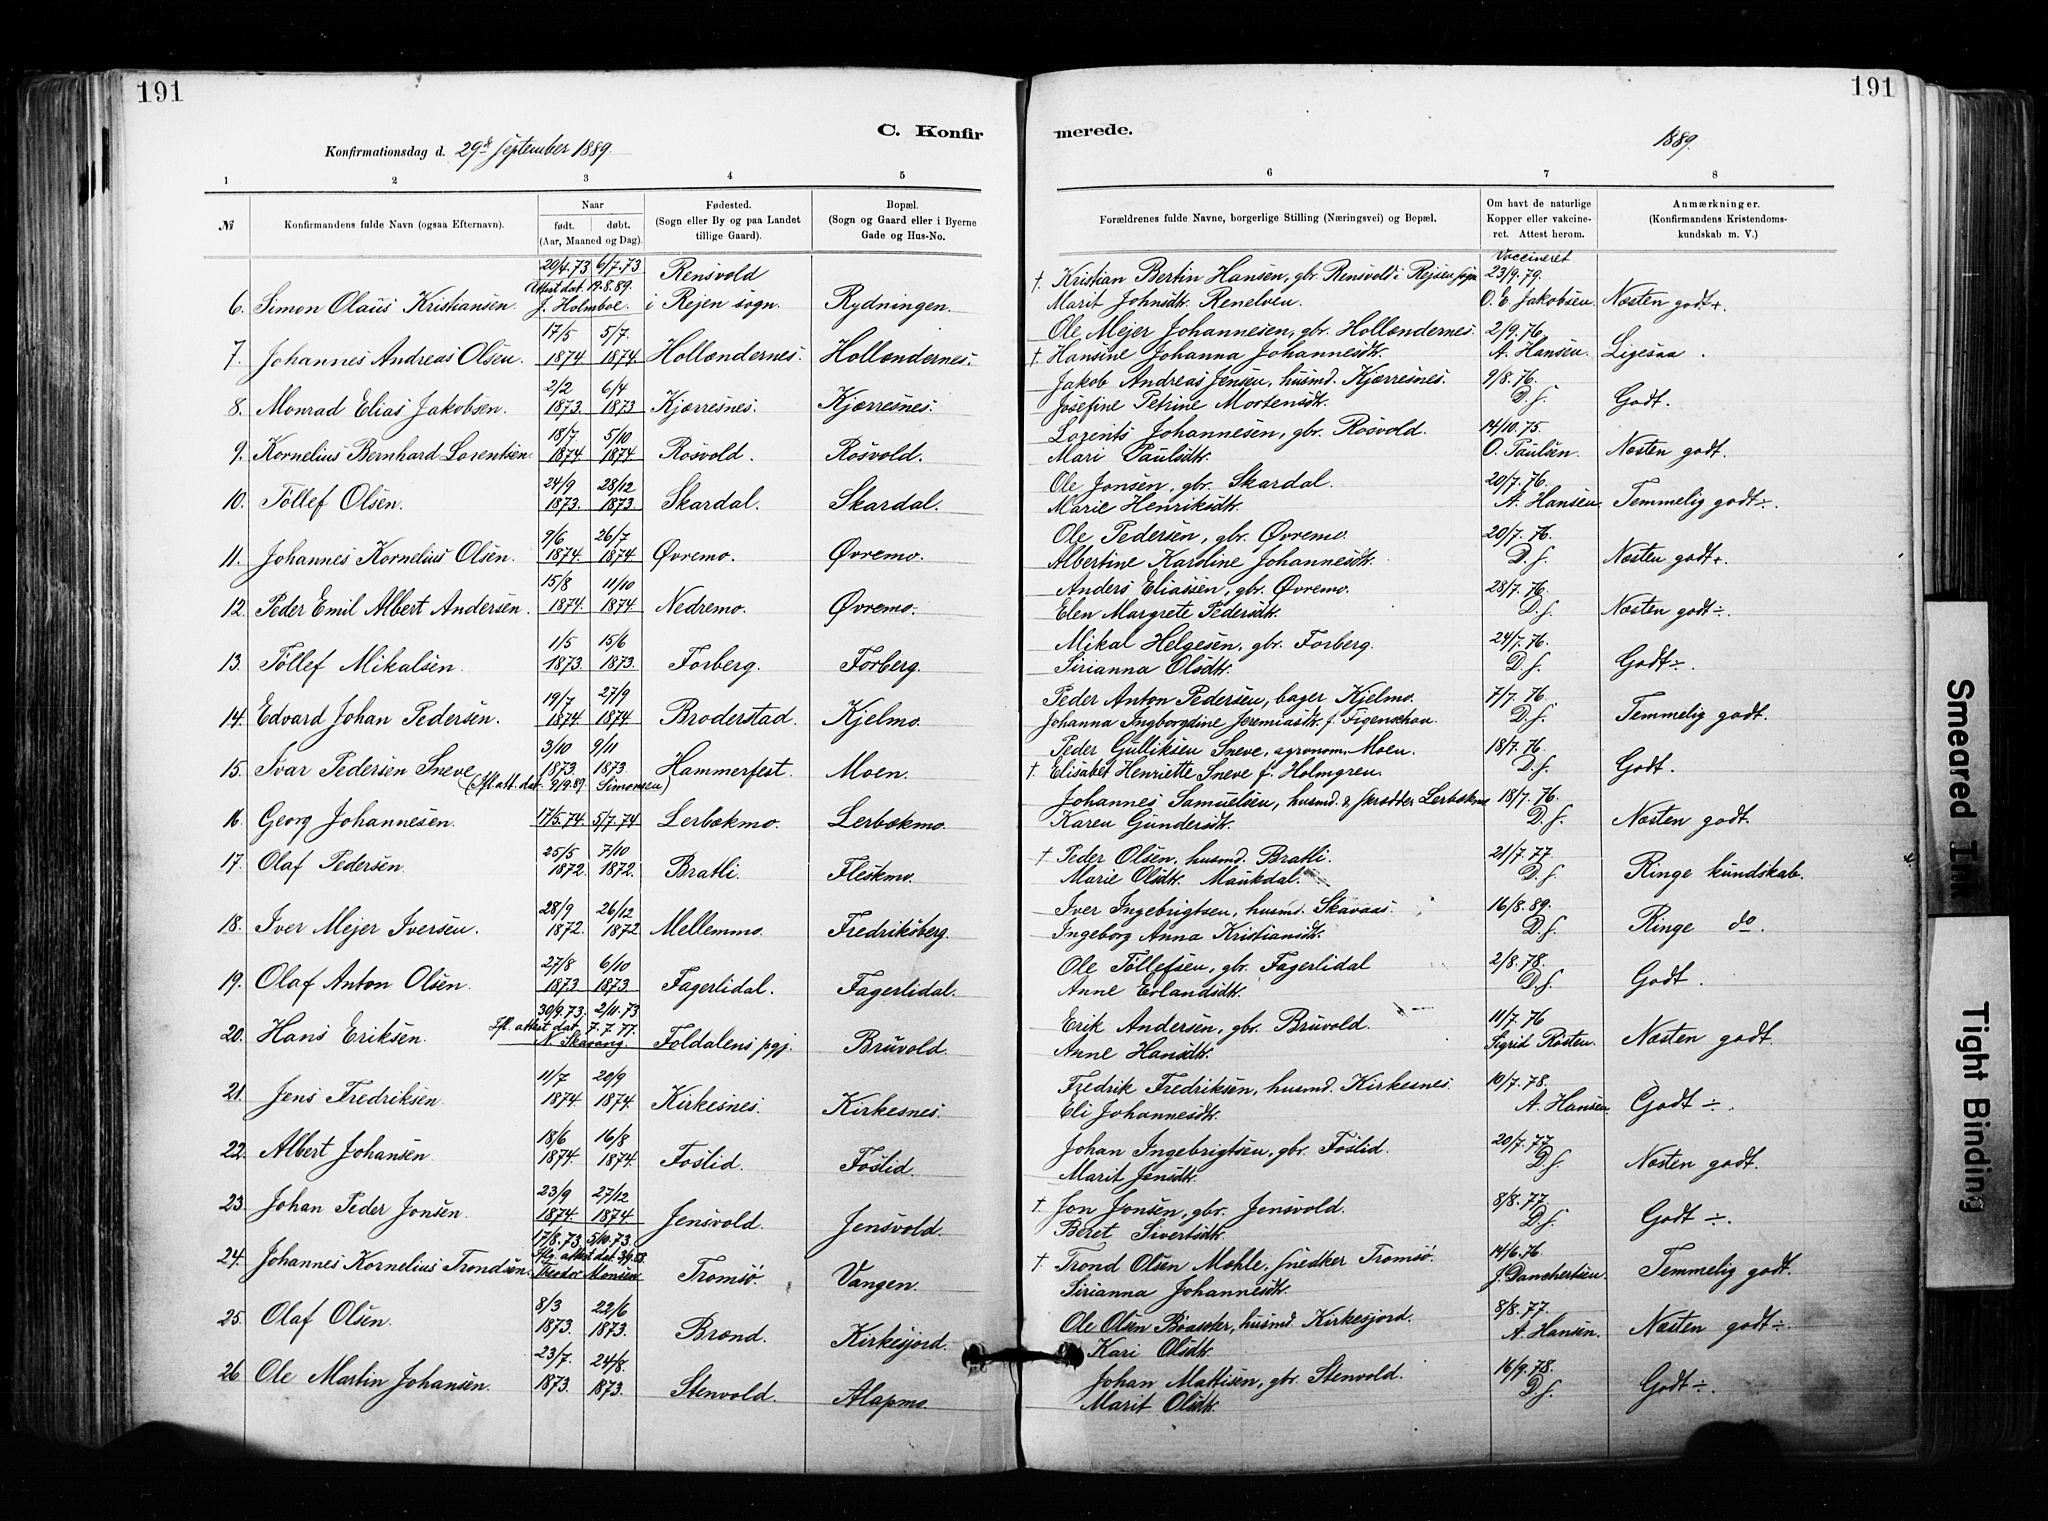 191
191
C. Konfir
merede.
Konfirmationsdag d. 29de September 1889.
1889.
1 2 3 4 5 6 7 8
№ Konfirmandens fulde Navn (ogsaa Efternavn).
Naar
født. døbt.
(Aar, Maaned og Dag).
Fødested.
(Sogn eller By og paa Landet
tillige Gaard).
Bopæl.
(Sogn og Gaard eller i Byerne
Gade og Hus-No.
Forældrenes fulde Navne, borgerlige Stilling (Næringsvei) og Bopæl.
Om havt de naturlige
Kopper eller vakcine-
ret. Attest herom.
Anmærkninger.
(Konfirmandens Kristendoms-
kundskab m. V.)
20/4.73 6/7.73 Rensvold † Kristian Bertin Hansen, gbr. Rensvold i Rejsen sogn Vaccineret 23/9.79.
Attest dat. 19.8.89.
6. Simon Olaus Kristiansen J. Holmboe. i Rejen sogn. Rydningen. Marit Johnsdtr. Renelven. O. E. Jakobsen Næsten godt+.
17/5 5/7. Ole Mejer Johannesen, gbr. Hollændernes. 2/9.76.
7. Johannes Andreas Olsen. 1874 1874. Hollændernes. Hollændernes. † Hansine Johanna Johannesdtr. A. Hansen. Ligesaa.
2/2 6/4 Jakob Andreas Jensen, husmd. Kjærresnes. 9/8.76.
8. Monrad Elias Jakobsen. 1873. 1873 Kjærresnes. Kjærresnes. Josefine Petrine Mortensdtr. D.s. Godt.
18/7 5/10 Lorents Johannesen, gbr. Rosvold. 14/10.75.
9. Kornelius Bernhard Lorentsen. 1874 1874. Rosvold. Rosvold. Mari Paulsdtr. O. Paulsen. Næsten godt.
24/9 28/12 Ole Jonsen, gbr. Skardal. 20/7.76.
10. Tollef Olsen. 1873. 1873. Skardal. Skardal. Marie Henriksdtr. A. Hansen. Temmelig godt÷.
9/6 26/7 Ole Pedersen, gbr. Øvremo. 20/7.76.
11. Johannes Kornelius Olsen. 1874. 1874 Øvremo. Øvremo. Albertine Karoline Johannesdtr. D.s. Næsten godt+.
15/8 11/10 Anders Eliassen, gbr. Øvremo. 28/7.76.
12. Peder Emil Albert Andersen. 1874. 1874 Nedremo. Øvremo. Elen Margrete Pedersdtr. D.s. Næsten godt÷.
1/5 15/6 Mikal Helgesen, gbr. Forberg. 24/7.76.
13. Tollef Mikalsen. 1873 1873. Forberg. Forberg. Sirianna Olsdtr. D.s. Godt÷.
19/7 27/9 Peder Anton Pedersen, bager Kjelmo. 7/7 76.
14. Edvard Johan Pedersen. 1874 1874. Broderstad. Kjelmo. Johanna Ingborgdine Jeremiasdtr. f. Figenschau. D.s. Temmelig godt.
3/10 9/11 Peder Gulliksen Sneve, agronom, Moen. 18/7.76.
15. Ivar Pedersen Sneve 1873. 1873. Hammerfest. Moen. † Elisabet Henriette Sneve f. Holmgren. D.s. Godt.
(Ifl. att. dat. 9/9.89. Simonsen)
Johannes Samuelsen, husmd. & skrædder Lerbækmo 18/7.76.
16. Georg Johannesen. 17/5.74. 5/7.74 Lerbækmo. Lerbækmo. Karen Gundersdtr. D.s. Næsten godt.
25/5 7/10 † Peder Olsen, husmd. Bratli. 21/7.77
17. Olaf Pedersen. 1872. 1872. Bratli. Fleskmo. Marie Olsdtr. Maukdal. D.s. Ringe kundskab.
28/9 26/12 Iver Ingebrigtsen, husmd. Skavaas. 16/8.89.
18. Iver Mejer Iversen. 1872. 1872 Mellemmo. Fredriksberg. Ingeborg Anna Kristiansdtr. D.s. Ringe do.
27/8 6/10 Ole Tollefsen, gbr. Fagerlidal 2/8.78.
19. Olaf Anton Olsen. 1873 1873. Fagerlidal. Fagerlidal. Anne Erlandsdtr. D.s. Godt.
30/9.73. 2/11.73 Erik Andersen, gbr. Bruvold. 11/7.76
Ifl. attest dat. 7.7.77.
20. Hans Eriksen. N. Skavang. Foldalens pgj. Bruvold. Anne Hansdtr. Sigrid Rosten. Næsten godt.
11/7 20/9 Fredrik Fredriksen, husmd. Kirkesnes. 10/7.78.
21. Jens Fredriksen. 1874. 1874. Kirkesnes. Kirkesnes. Eli Johannesdtr. A. Hansen. Godt ÷.
18/6 16/8 Johan Ingebrigtsen, gbr. Foslid. 20/7.77
22. Albert Johansen. 1874. 1874. Foslid. Foslid. Marit Jensdtr. D.s. Næsten godt.
23/9 27/12 † Jon Jonsen, gbr. Jensvold. 8/8.77.
23. Johan Peder Jonsen. 1874. 1874 Jensvold. Jensvold. Beret Sivertsdtr. D.s. Godt ÷.
17/8.73. 5/10.73. † Trond Olsen Mæhle, snedker Tromsø. 14/6.76.
24. Johannes Kornelius Trondsen. Theodor Monsen Tromsø. Vangen. Sirianna Johannesdtr. J. Danchertsen. Temmelig godt.
8/3 22/6 Ole Olsen, husmd. Kirkesjord. 8/8.77.
25. Olaf Olsen. 1873. 1873. Brænd. Kirkesjord. Kari Olsdtr. A. Hansen. Næsten godt÷.
23/7. 24/8. Johan Mattisen, gbr. Stenvold. 16/9.78.
26 Ole Martin Johansen. 1873. 1873. Stenvold. Alapmo. Marit Olsdtr. D.s. Godt÷.
Smeared Ink
Tight Binding